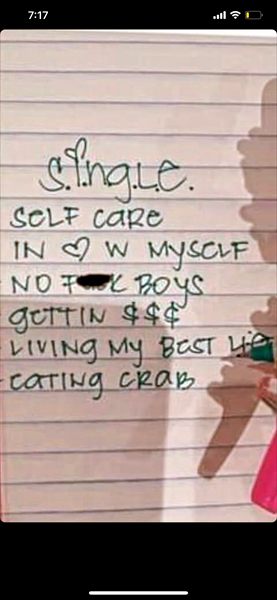 7:17
s.i.ng.L.e.
SELF CARE
IN ♡ W MYSELF
NO BOYS
GETTIN $$$
LIVING MY BEST
EATING CRAB